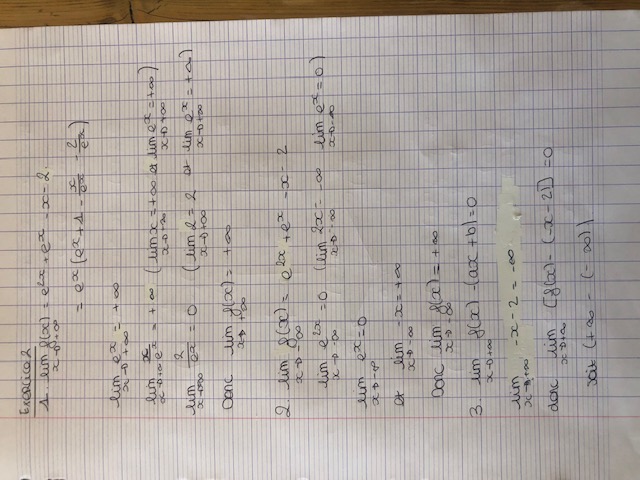 Exercice 2
1. lim f(x) = e^{2x} + e^x - x - 2.
x→+∞
= e^x (e^x + 1 - x/e^x - 2/e^x)
lim e^x = +∞
x→+∞
lim x/e^x = +∞ (lim x = +∞ et lim e^x = +∞)
x→+∞ x→+∞ x→+∞
lim 2/e^x = 0 (lim 2 = 2 et lim e^x = +∞)
x→+∞ x→+∞ x→+∞
Donc lim f(x) = +∞
x→+∞
2. lim f(x) = e^{2x} + e^x - x - 2
x→-∞
lim e^{2x} = 0 (lim 2x = -∞ lim e^x = 0)
x→-∞ x→-∞ x→-∞
lim e^x = 0
x→-∞
et lim -x = +∞
x→-∞
Donc lim f(x) = +∞
x→-∞
3. lim f(x) - (ax + b) = 0
x→+∞
lim -x - 2 = -∞
x→+∞
donc lim [f(x) - (-x - 2)] = 0
x→+∞
soit (+∞ - (-∞))